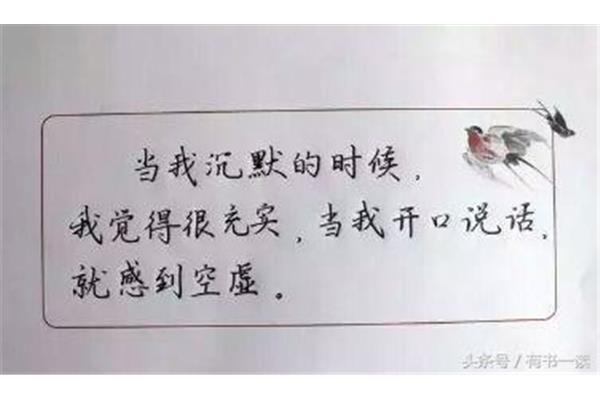 当我沉默的时候，
我觉得很充实，当我开口说话，
就感到空虚。
头条号/有书一读